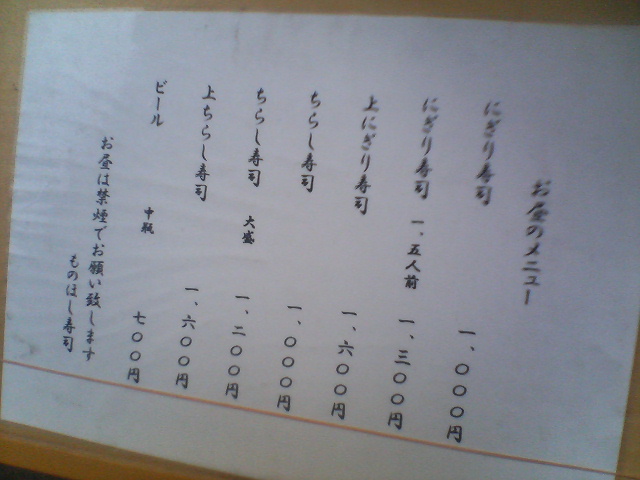 お昼のメニュー
にぎり寿司 一、〇〇〇円
にぎり寿司 一、五人前 一、三〇〇円
上にぎり寿司 一、六〇〇円
ちらし寿司 一、〇〇〇円
ちらし寿司 大盛 一、二〇〇円
上ちらし寿司 一、六〇〇円
ビール 中瓶 七〇〇円
お昼は禁煙でお願い致します
ものほし寿司